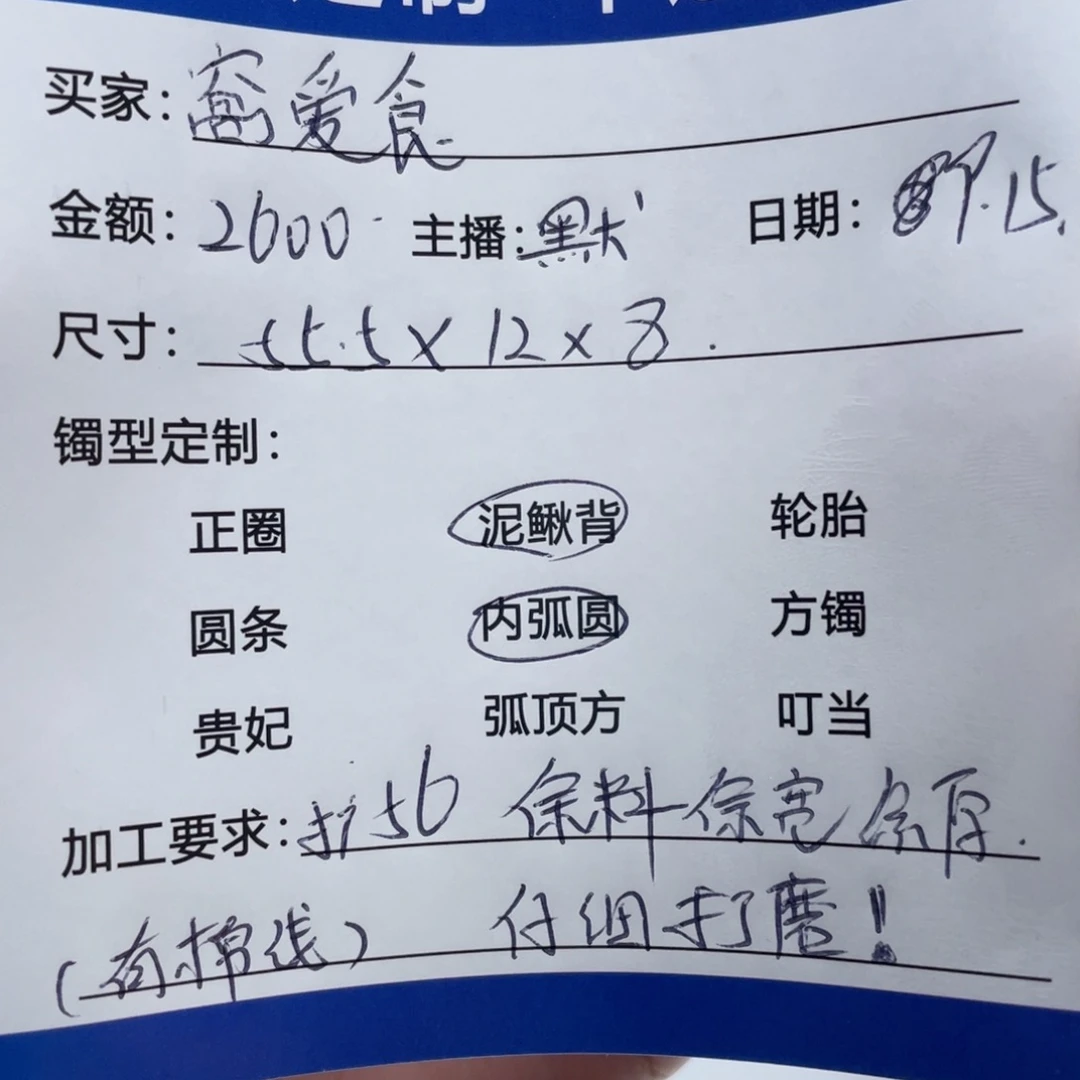 买家：窩爱食
金额：2600 主播：默 日期：9.15.
尺寸：55.5×12×8.
镯型定制：
正圈 泥鳅背 轮胎
圆条 内弧圆 方镯
贵妃 弧顶方 叮当
加工要求：打56 保料保宽保厚.
（有棉线） 仔细打磨！